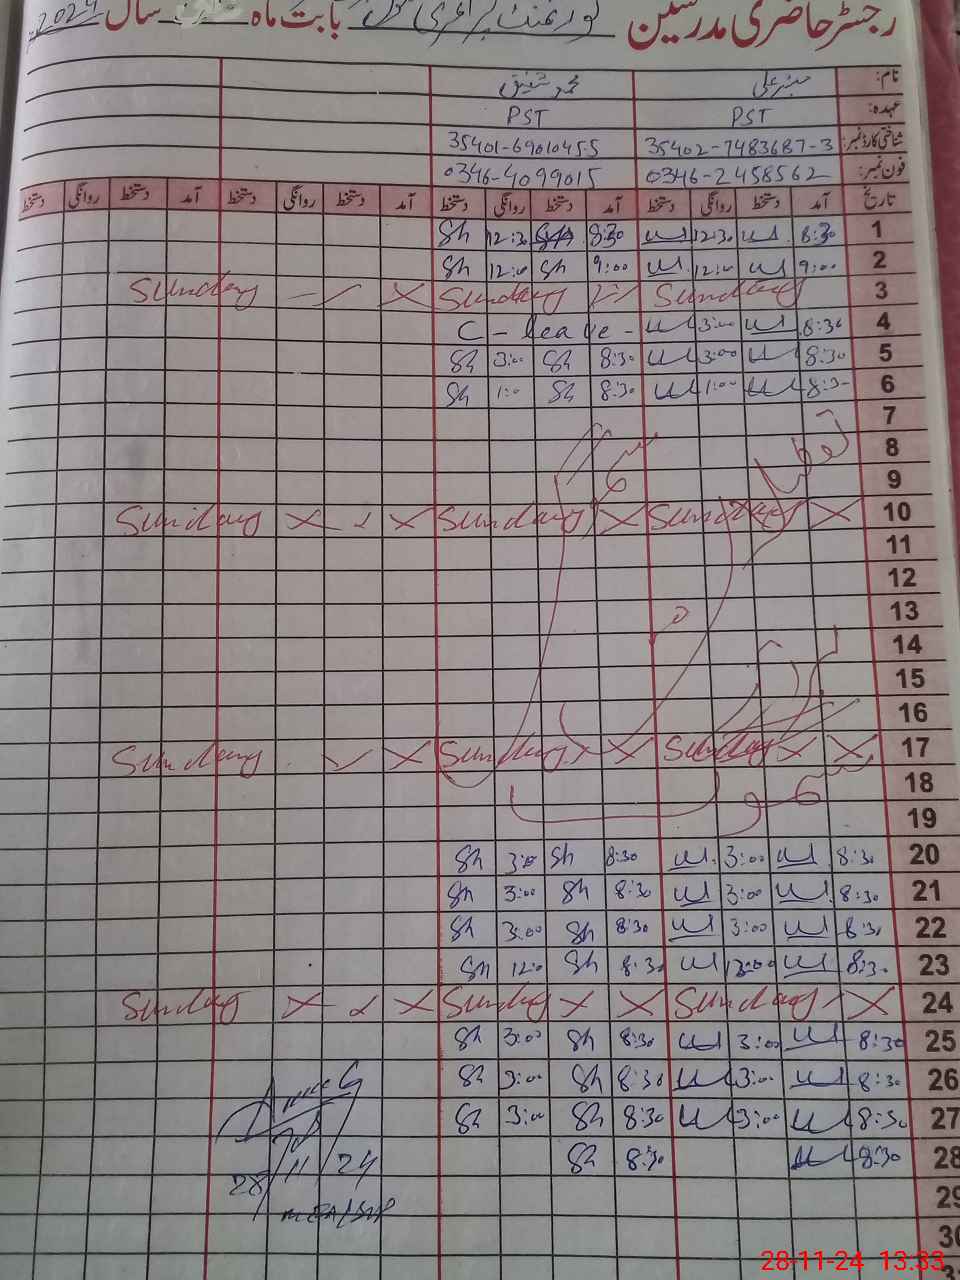 رجسٹر حاضری مدرسین گورنمنٹ پرائمری سکول بابت ماہ سال 2024
نام: محمد شفیق
عہدہ: PST PST
شناختی کارڈ نمبر: 35402-7483687-3 35401-6901045-5
فون نمبر: 0346-2458562 0346-4099015
تاریخ آمد دستخط روانگی دستخط آمد دستخط روانگی دستخط آمد دستخط روانگی دستخط آمد دستخط روانگی دستخط
1 8:30 12:30 8:30 Sh 12:30 Sh
2 9:00 12:00 9:00 Sh 12:00 Sh
3 Sunday Sunday Sunday
4 8:30 3:00 C-leave-
5 8:30 3:00 8:30 Sh 3:00 Sh
6 8:30 1:00 8:30 Sh 1:0 Sh
7
8
9
10 Sunday Sunday Sunday
11
12
13
14
15
16
17 Sunday Sunday Sunday
18
19
20 8:30 3:00 8:30 Sh 3:0 Sh
21 8:30 3:00 8:30 Sh 3:00 Sh
22 8:30 3:00 8:30 Sh 3:00 Sh
23 8:30 12:00 8:30 Sh 12:0 Sh
24 Sunday Sunday Sunday
25 8:30 3:00 8:30 Sh 3:00 Sh
26 8:30 3:00 8:30 Sh 3:00 Sh
27 8:30 3:00 8:30 Sh 3:00 Sh
28 8:30 8:30 Sh
28/11/24
29
30
31
28-11-24 13:33